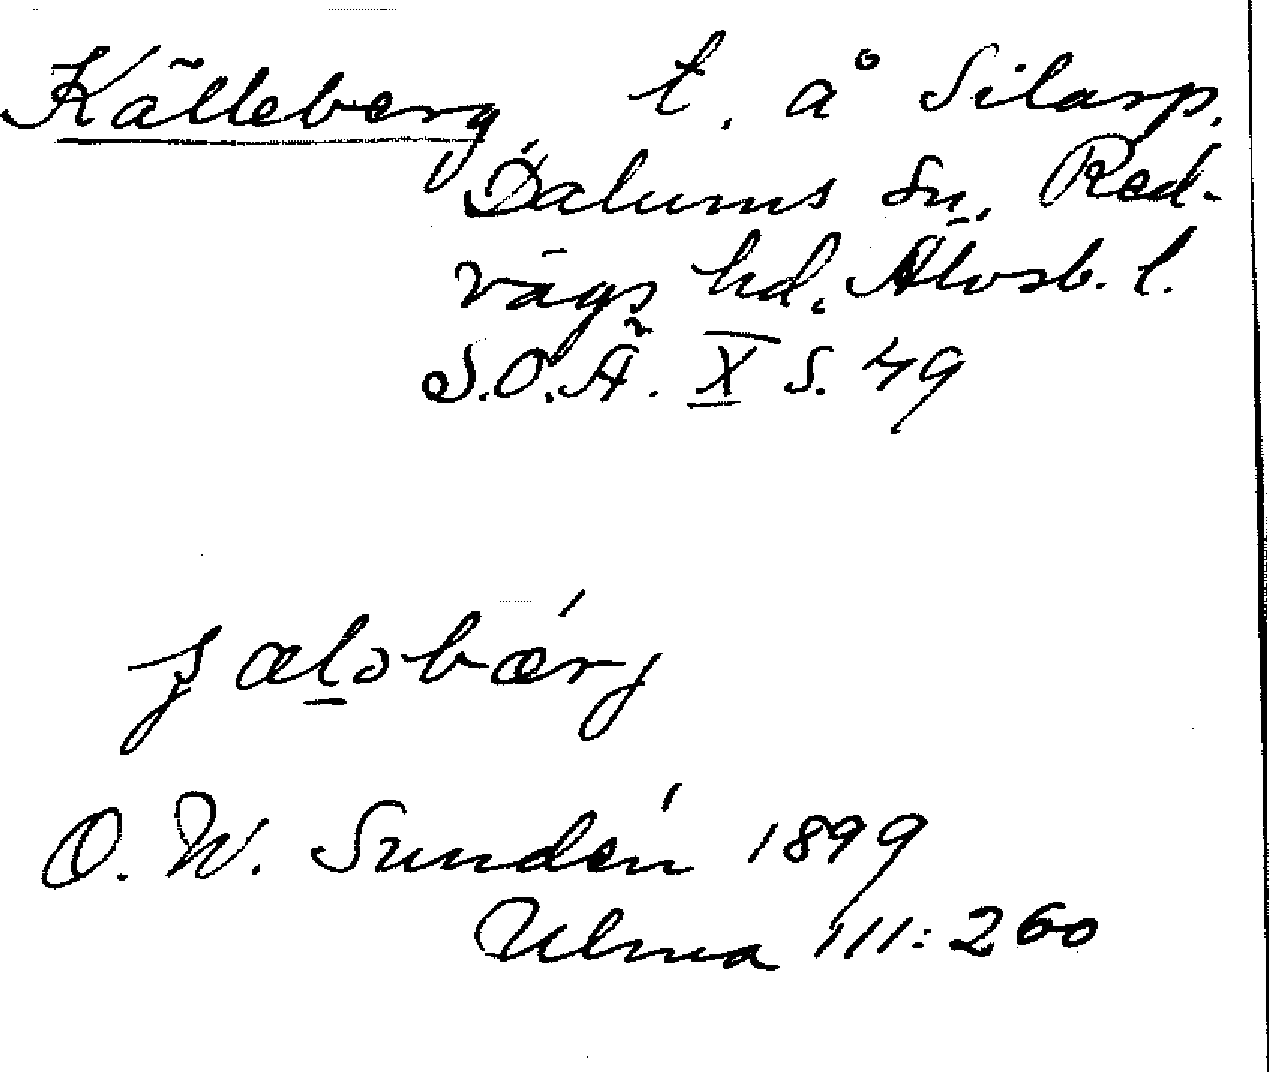 Källeberg t. å Silarp.
Dalums sn, Red-
vägs hd. Älvsb. l.
S.O.Ä. X s. 49
O. W. Sundén 1899
Ulma 111:260